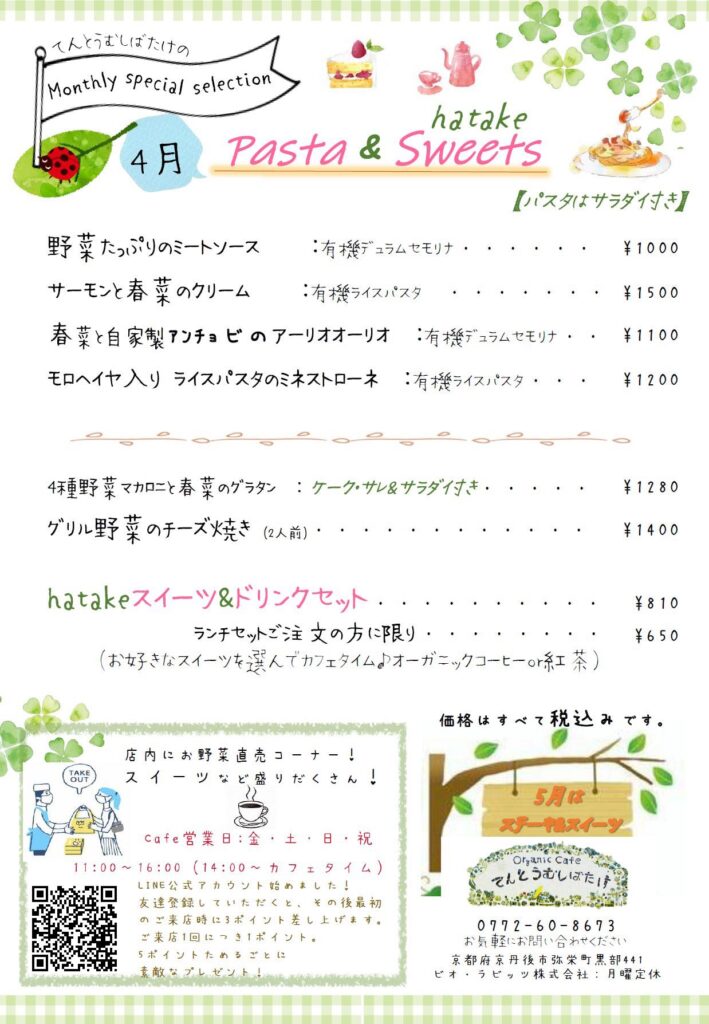 てんとうむしばたけの
Monthly special selection
4月
hatake
Pasta & Sweets
【パスタはサラダイ付き】
野菜たっぷりのミートソース :有機デュラムセモリナ・・・・・・ ¥1000
サーモンと春菜のクリーム :有機ライスパスタ ・・・・・・・ ¥1500
春菜と自家製アンチョビのアーリオオーリオ :有機デュラムセモリナ・・ ¥1100
モロヘイヤ入り ライスパスタのミネストローネ :有機ライスパスタ・・・ ¥1200
4種野菜マカロニと春菜のグラタン : ケーク・サレ&サラダイ付き・・・・・ ¥1280
グリル野菜のチーズ焼き (2人前)・・・・・・・・・・・・ ¥1400
hatakeスイーツ&ドリンクセット・・・・・・・・・・ ¥810
ランチセットご注文の方に限り・・・・・・・・ ¥650
(お好きなスイーツを選んでカフェタイム♪オーガニックコーヒーor紅茶)
TAKE OUT
店内にお野菜直売コーナー!
スイーツなど盛りだくさん!
Cafe営業日:金・土・日・祝
11:00~16:00 (14:00~カフェタイム)
LINE公式アカウント始めました!
友達登録していただくと、その後最初
のご来店時に3ポイント差し上げます。
ご来店1回につき1ポイント。
5ポイントためるごとに
素敵なプレゼント!
価格はすべて税込みです。
5月は
ステーキ&スイーツ
Organic Cafe
てんとうむしばたけ
0772-60-8673
お気軽にお問い合わせください
京都府京丹後市弥栄町黒部441
ビオ・ラビッツ株式会社:月曜定休